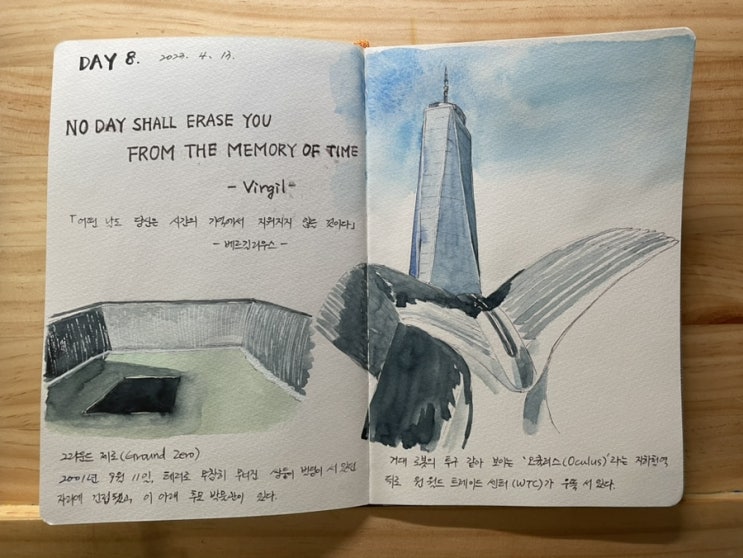 DAY 8. 2023. 4. 13.
NO DAY SHALL ERASE YOU
FROM THE MEMORY OF TIME
- Virgil -
「어떤 날도 당신은 시간의 기억에서 지워지지 않는 것이다」
- 베르길리우스 -
그라운드 제로(Ground Zero)
2001년 9월 11일, 테러로 무참히 무너진 쌍둥이 빌딩이 서 있던
자리에 건립됐고, 이 아래 추모 박물관이 있다.
거대 로봇의 투구 같아 보이는 '오큘러스(Oculus)'라는 지하철역
뒤로 원 월드 트레이드 센터(WTC)가 우뚝 서 있다.